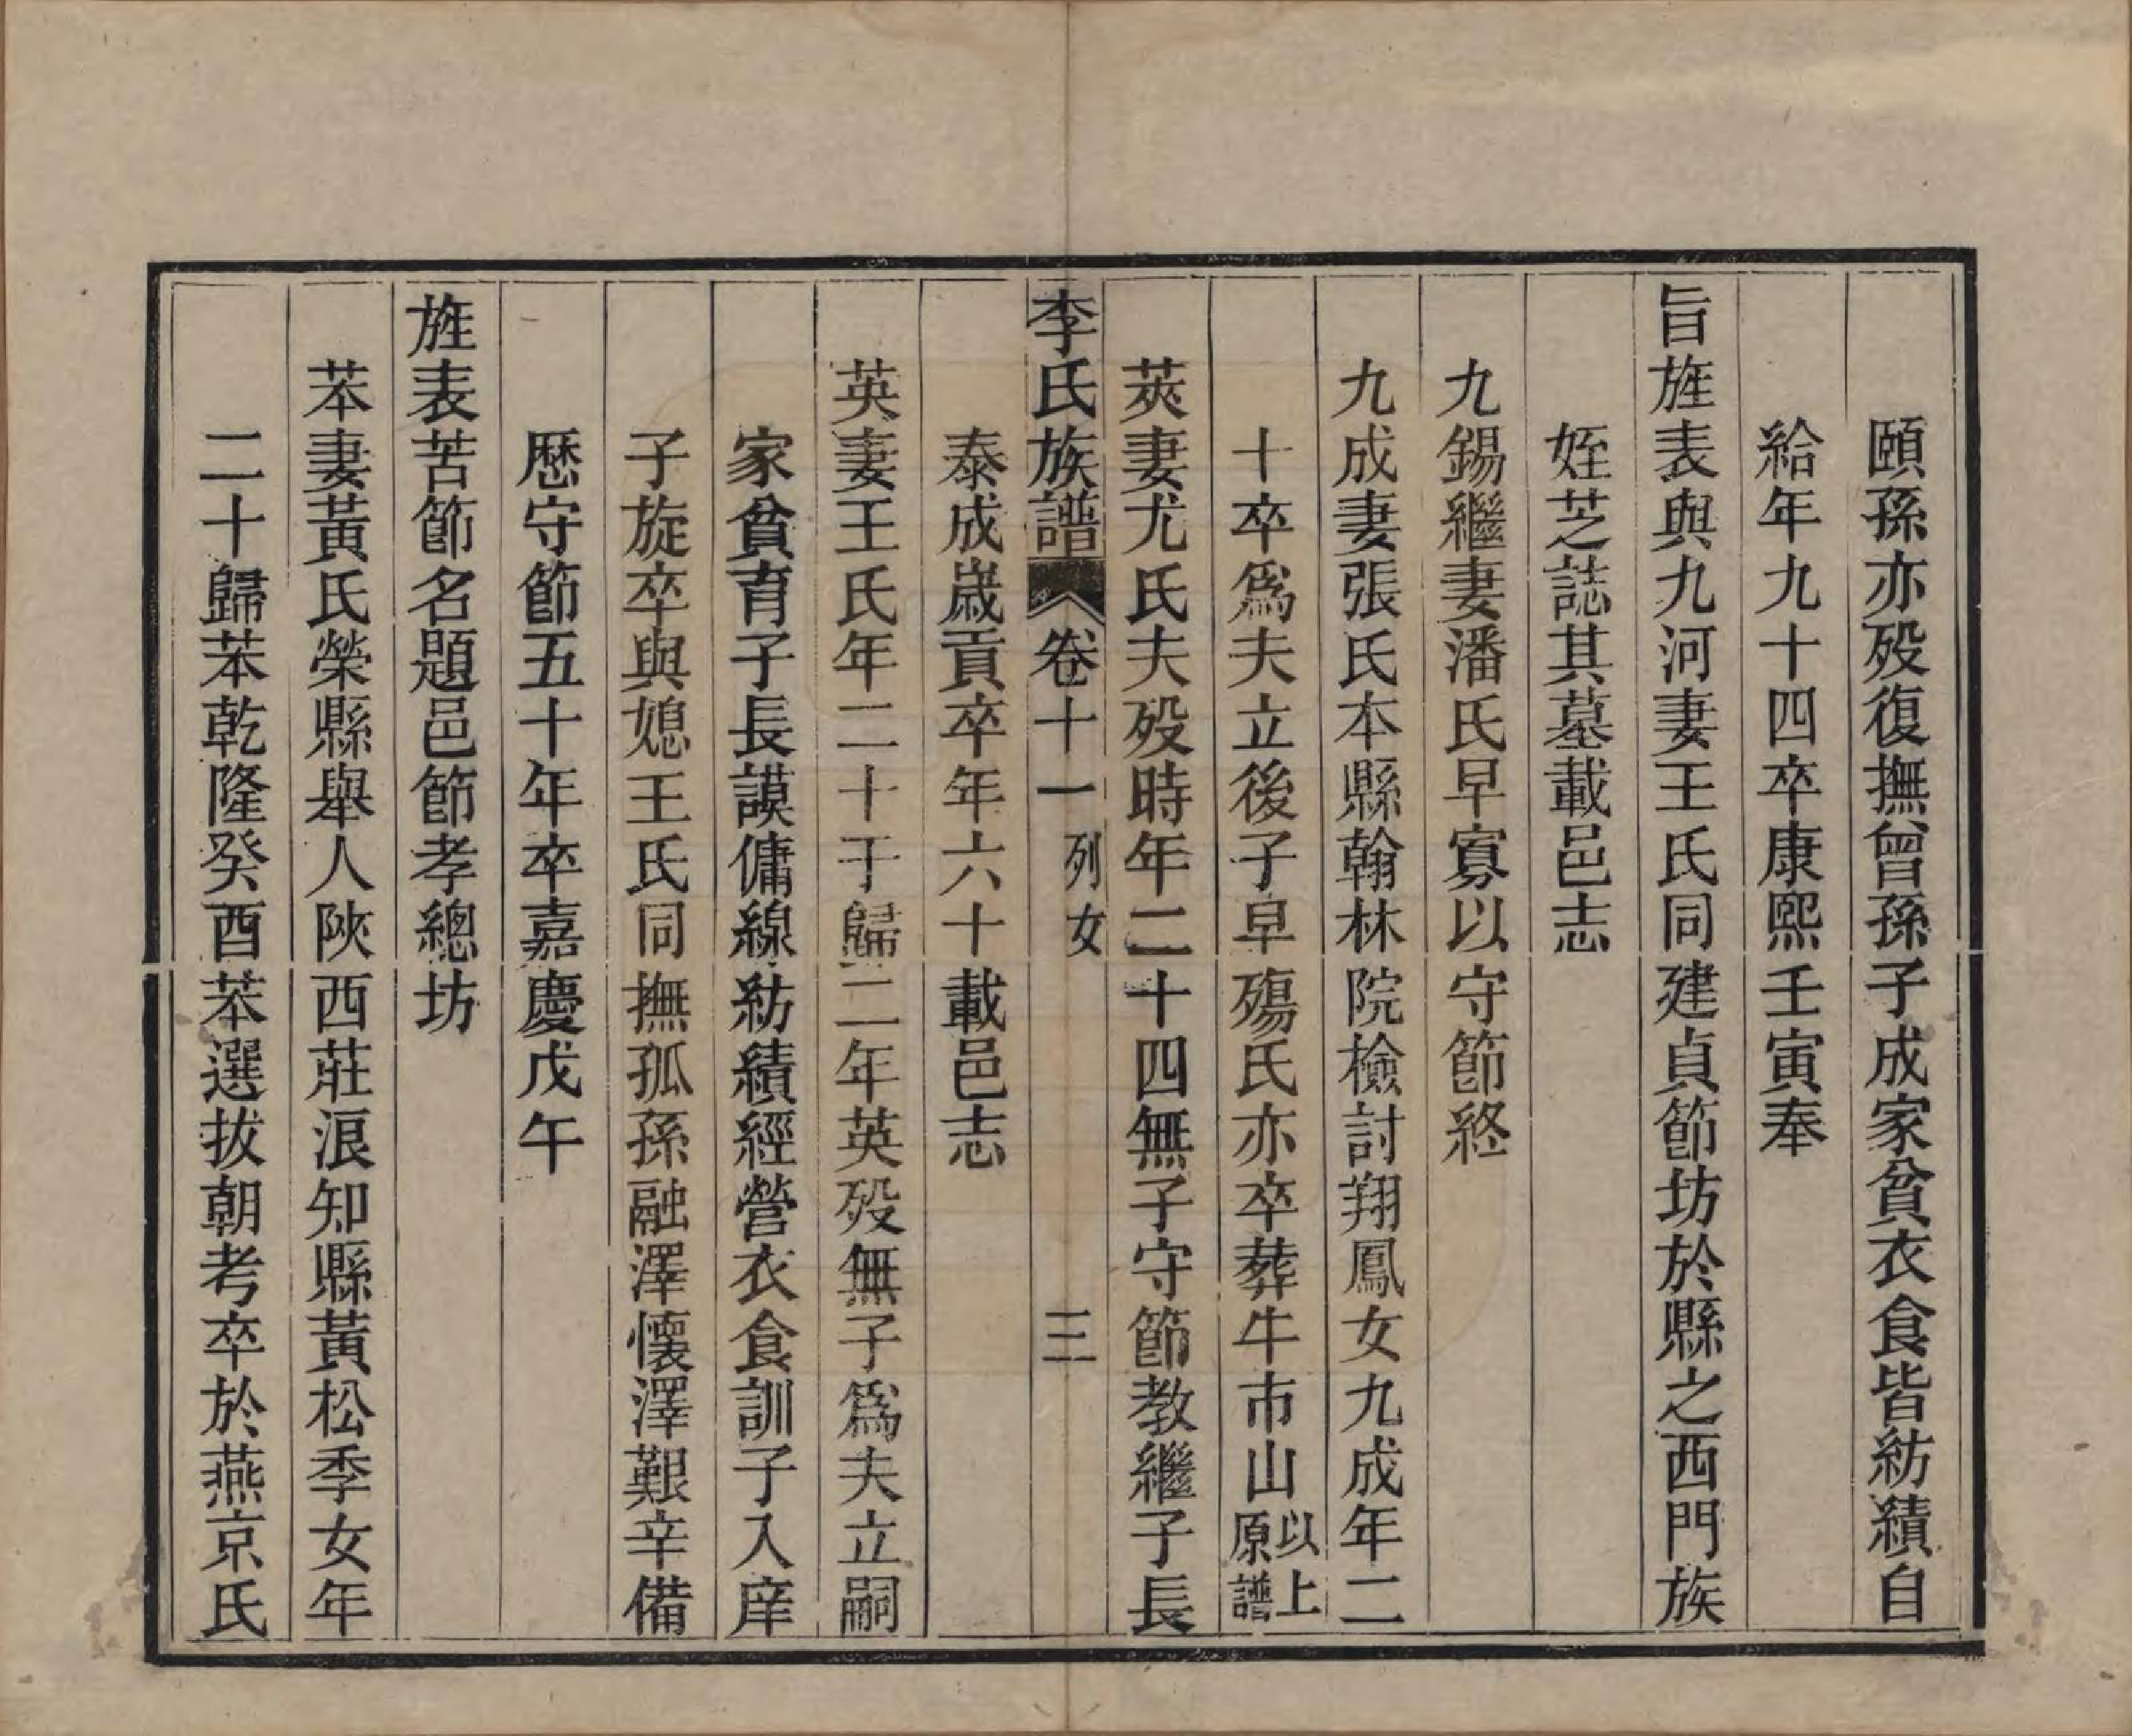 頤孫亦歿復撫曾孫子成家貧衣食皆紡績自
給年九十四卒康熙壬寅奉
旨旌表與九河妻王氏同建貞節坊於縣之西門族
姪芝誌其墓載邑志
九錫繼妻潘氏早寡以守節終
九成妻張氏本縣翰林院檢討翔鳳女九成年二
十卒爲夫立後子早殤氏亦卒葬牛市山以上原譜
莢妻尤氏夫歿時年二十四無子守節教繼子長
李氏族譜 卷十一 列女 三
泰成歲貢卒年六十載邑志
英妻王氏年二十于歸二年英歿無子爲夫立嗣
家貧育子長謨傭線紡績經營衣食訓子入庠
子旋卒與媳王氏同撫孤孫融澤懷澤艱辛備
歷守節五十年卒嘉慶戊午
旌表苦節名題邑節孝總坊
苯妻黃氏榮縣舉人陝西莊浪知縣黃松季女年
二十歸苯乾隆癸酉苯選拔朝考卒於燕京氏